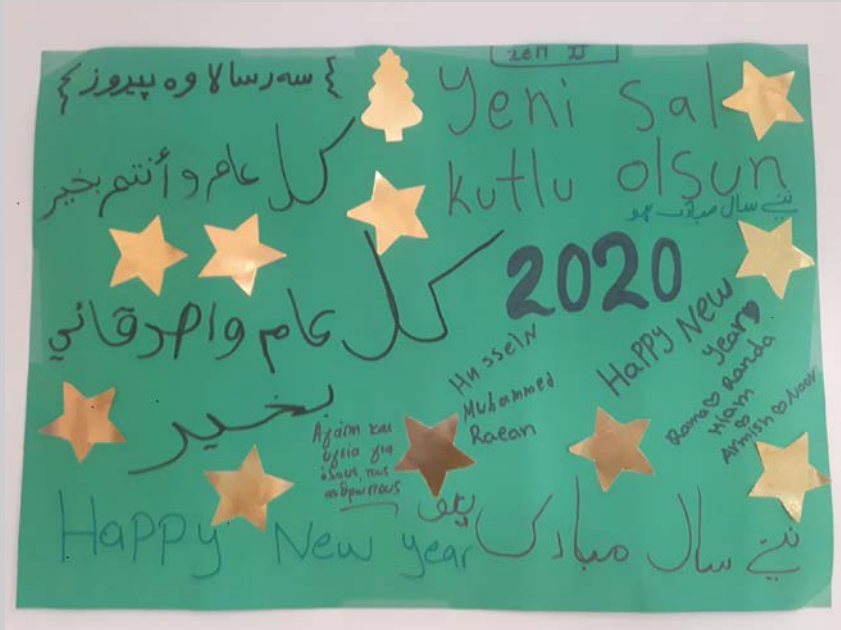 ΖΕΠ ΙΙ
{ سەر سالا وە پیروز }
Yeni Sal
Kutlu olsun
نئے سال مبارک ہو
كل عام وأنتم بخير
2020
كل عام واصدقائي
بخير
Hussein
Muhammed
Raean
Happy New
year♥
Rama♡Randa
Hlam
♡
Armish♡Noor
Αγάπη και
υγεία για
όλους τους
ανθρώπους
Happy New year
نئے سال مبارک
ہو